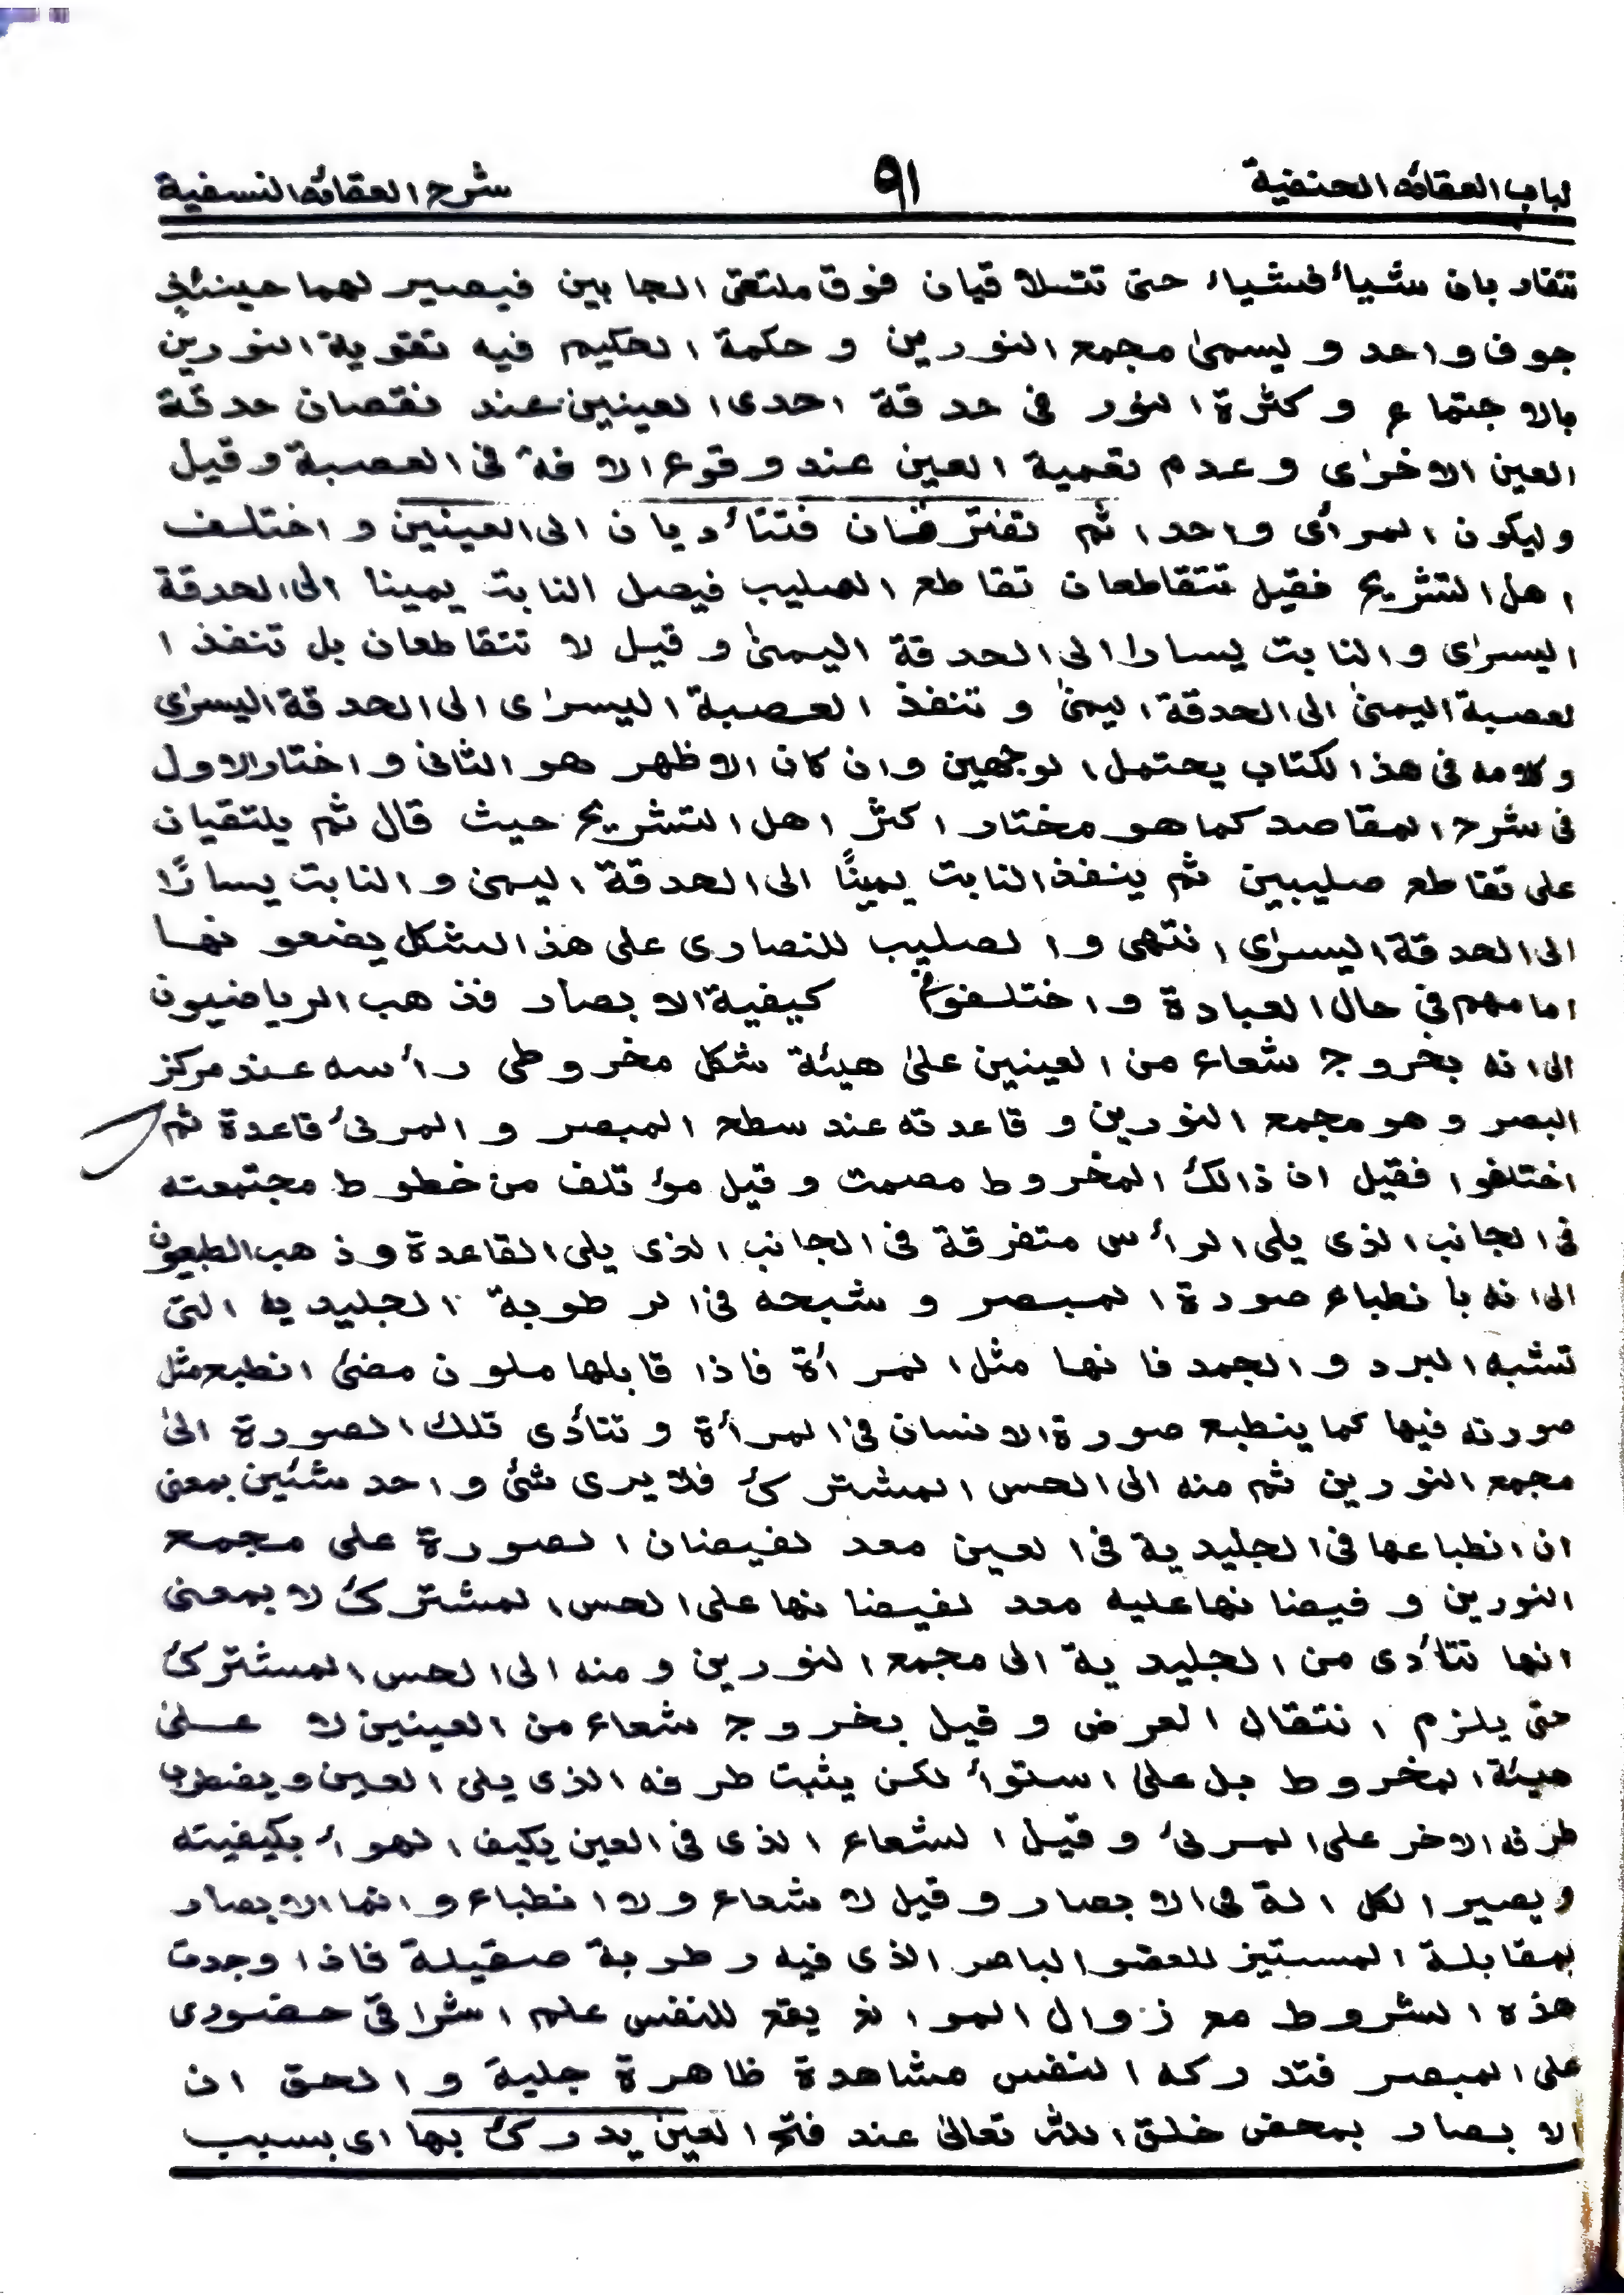 لباب العقائد الحنفية ٩١ شرح العقائد النسفية
تتقاربان شيأ فشياء حتى تتلاقيان فوق ملتقى الحابين فيصير لهما حينئذٍ
جوف واحد و يسمىٰ مجمع النورين و حكمة الحكيم فيه تقوية النورين
بالاجتماع و كثرة النور فى حدقة احدى العينين عند نقصان حدقة
العين الاخرٰى و عدم تعمية العين عند وقوع الافة فى العصبة و قيل
وليكون المرأى واحدا ثم تفترضان فتتأديان الى العينين و اختلف
اهل التشريح فقيل تتقاطعان تقاطع الصليب فيصل النابت يمينا الى الحدقة
اليسرٰى و النابت يسارا الى الحدقة اليمنىٰ و قيل لا تتقاطعان بل تنفذ ا
لعصبة اليمنىٰ الى الحدقة اليمنىٰ و تنفذ العصبة اليسرٰى الى الحدقة اليسرٰى
و كلامه فى هذا الكتاب يحتمل الوجهين وان كان الاظهر هو الثانى و اختار الاول
فى شرح المقاصد كما هو مختار اكثر اهل التشريح حيث قال ثم يلتقيان
على تقاطع صليبين ثم ينفذ النابت يمينًا الى الحدقة اليمنى و النابت يسارًا
الى الحدقة اليسرٰى انتهى و الصليب للنصارى على هذا الشكل يضعونها
امامهم فى حال العبادة و اختلفوا فى كيفية الابصار فذهب الرياضيون
الى انه بخروج شعاع من العينين علىٰ هيئة شكل مخروطى رأسه عند مركز
البصر و هو مجمع النورين و قاعدته عند سطح المبصر و المرئ قاعدة ثم
اختلفوا فقيل ان ذالك المخروط مصمت و قيل مؤتلف من خطوط مجتمعته
فى الجانب الذى يلى الرأس متفرقة فى الجانب الذى يلى القاعدة و ذهب الطبعيون
الى انه بانطباع صورة المبصر و شبحه فى الرطوبة الجليدية التى
تشبه البرد و الجمد فانها مثل المرأة فاذا قابلها ملون مضئ انطبع مثل
صورته فيها كما ينطبع صورة الانسان فى المرأة و تتأدى تلك الصورة الىٰ
مجمع النورين ثم منه الى الحس المشترك فلا يرى شئ واحد شئين بمعنى
ان انطباعها فى الجليدية فى العين معد لفيضان الصورة على مجمع
النورين و فيضانها عليه معد لفيضانها على الحس المشترك لا بمعنى
انها تتأدى من الجليدية الى مجمع النورين و منه الى الحس المشترك
حتى يلزم انتقال العرض و قيل بخروج شعاع من العينين لا علىٰ
هيئة المخروط بل علىٰ استوأ لكن يثبت طرفه الذى يلى العين و يضطرب
طرفه الاخر على المرئ و قيل الشعاع الذى فى العين يكيف الهوأ بكيفيته
و يصير الكل الة فى الابصار و قيل لا شعاع ولا انطباع و انما الابصار
بمقابلة المستنير للعضو الباصر الذى فيه رطوبة صقيلة فاذا وجدت
هذه الشروط مع زوال الموانع يقع للنفس علم اشراقى حضورى
على المبصر فتدركه النفس مشاهدة ظاهرة جلية و الحق ان
الابصار بمحض خلق الله تعالىٰ عند فتح العين يدرك بها اى بسبب